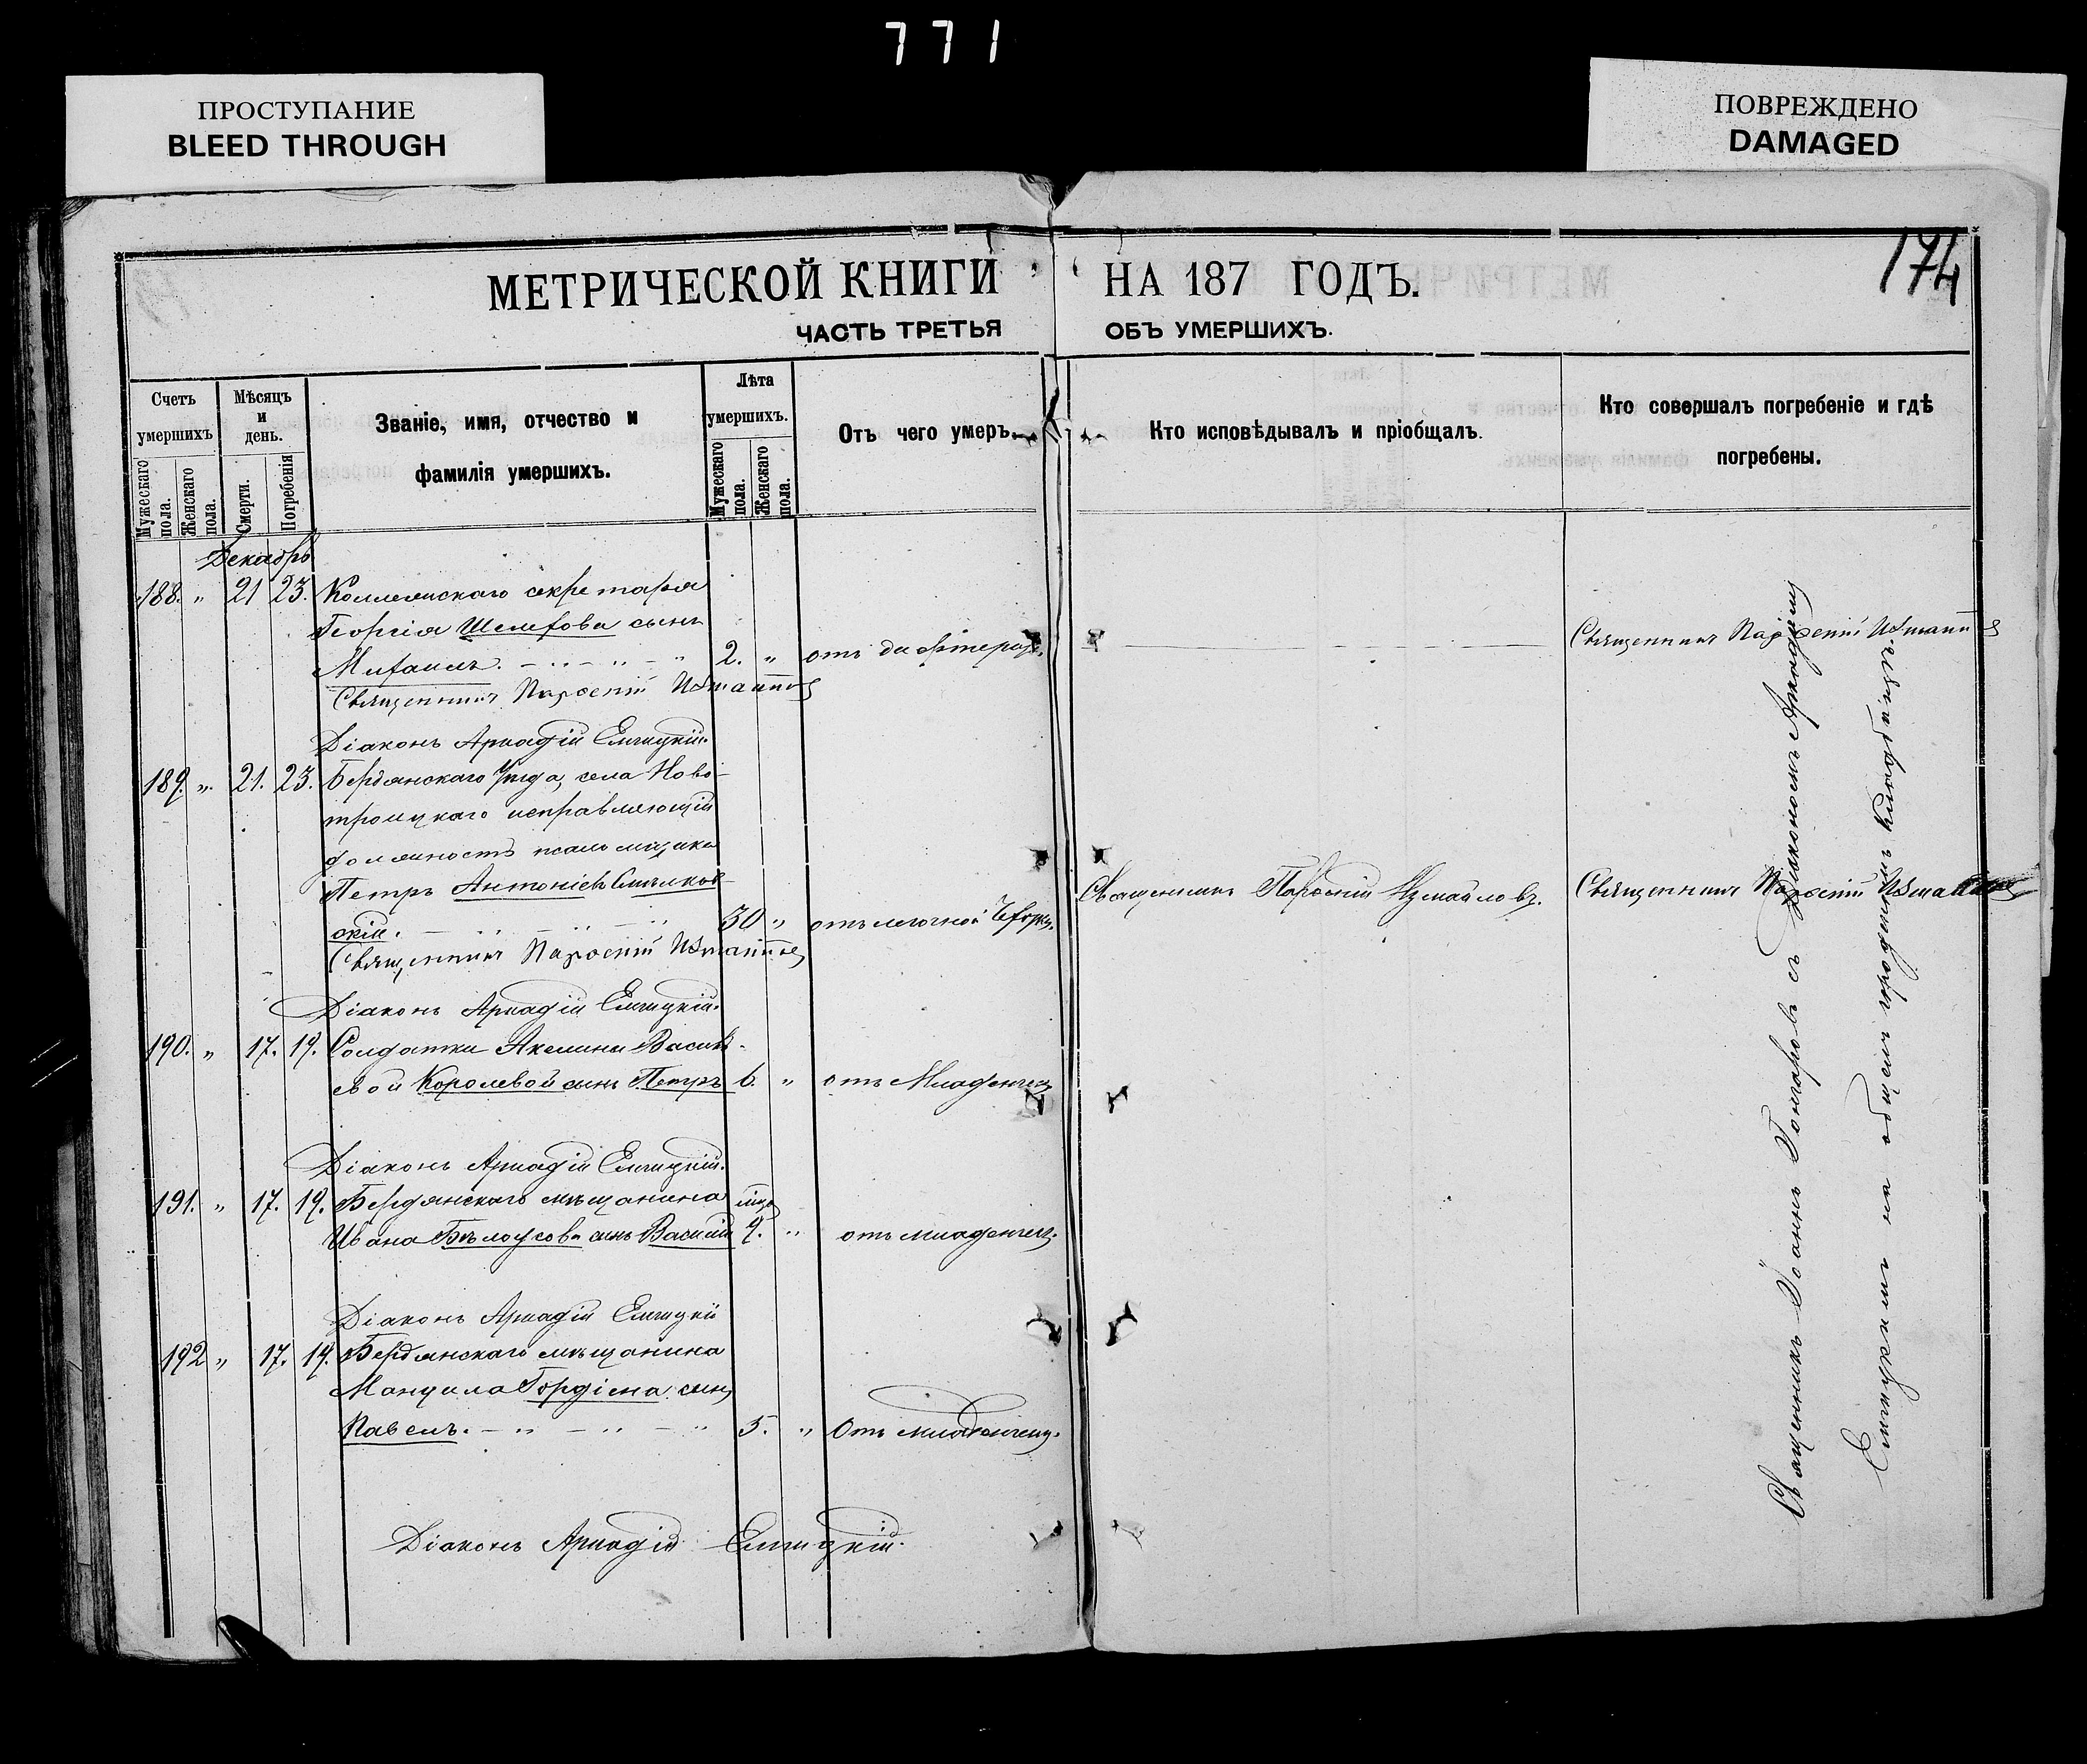 771
ПРОСТУПАНИЕ
BLEED THROUGH
ПОВРЕЖДЕНО
DAMAGED
174
МЕТРИЧЕСКОЙ КНИГИ НА 187 ГОДЪ.
ЧАСТЬ ТРЕТЬЯ ОБЪ УМЕРШИХЪ.
Счетъ умершихъ
Мужескаго пола.
Женскаго пола.
Мѣсяцъ и день.
Смерти.
Погребенія
Званіе, имя, отчество и
фамилія умершихъ.
Лѣта умершихъ.
Мужескаго пола.
Женскаго пола.
Отъ чего умеръ.
Кто исповѣдывалъ и пріобщалъ.
Кто совершалъ погребеніе и гдѣ
погребены.
Декабрь
188. " 21 23. Коллежскаго секретаря
Георгія сынъ
Михаилъ. 2. " отъ дифтерита. Священникъ Парѳеній Измайловъ
Священникъ Парѳеній Измайловъ
Діаконъ Аркадій
189. " 21. 23. Бердянскаго уѣзда, села Ново-
троицкаго исправляющій
должность псаломщика
Петръ Антоніевъ
скій. 30 " отъ легочной Священникъ Парѳеній Измайловъ. Священникъ Парѳеній Измайловъ
Священникъ Парѳеній Измайловъ
Діаконъ Аркадій
190. " 17. 19. Солдатки Акелины Василь-
евой Королевой сынъ Петръ 6. " отъ Младенчец
Діаконъ Аркадій
191. " 17. 19. Бердянскаго мѣщанина
Ивана Бѣлоусова сынъ Василій " отъ младенчец.
Діаконъ Аркадій
192 " 17. 19. Бердянскаго мѣщанина
Мануила сынъ
Павелъ. 5. " Отъ младенчец.
Діаконъ Аркадій
Священникъ Іоаннъ Гончаровъ съ Діакономъ Аркадіемъ
на общемъ городскомъ кладбищѣ.